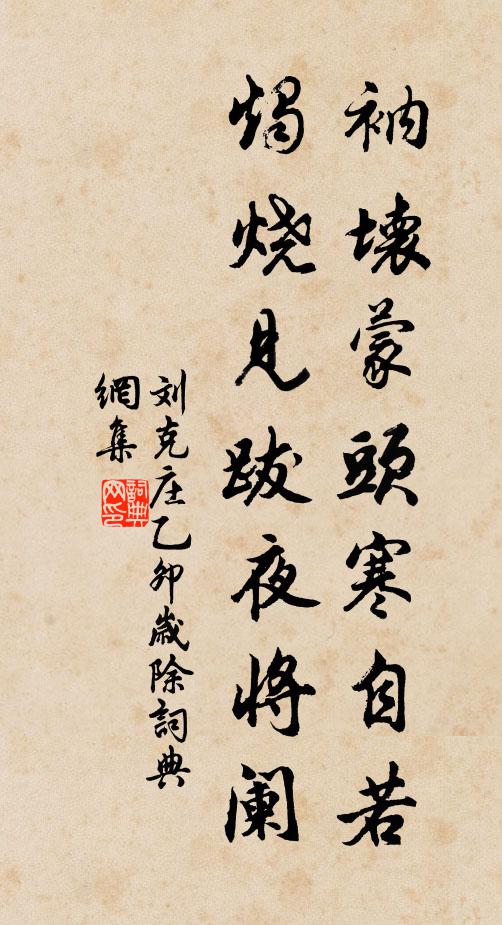 衲壞蒙頭寒自若
燭烧見跋夜將阑
刘克庄乙卯歲除詞典
網集
詞典
网印